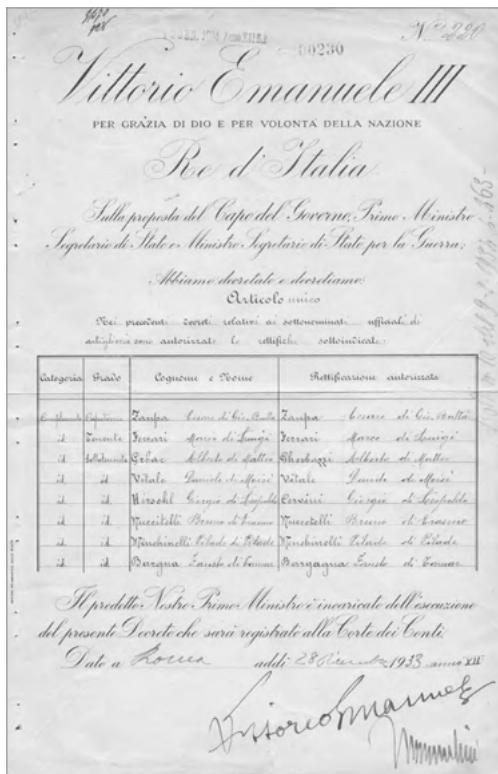 N° 220
00230
Vittorio Emanuele III
PER GRAZIA DI DIO E PER VOLONTÀ DELLA NAZIONE
Re d'Italia
Sulla proposta del Capo del Governo, Primo Ministro
Segretario di Stato e Ministro Segretario di Stato per la Guerra;
Abbiamo decretato e decretiamo:
Articolo unico
Nei precedenti decreti relativi ai sottonominati ufficiali di
artiglieria sono autorizzate le rettifiche sottoindicate:
Categoria Grado Cognome e Nome Rettificazione autorizzata
Zanpa Cesare di Gio. Batta Zanpa Cesare di Gio. Batta
id. Tenente Ferrari Marco di Luigi Ferrari Marco di Luigi
id. Sottotenente Alberto di Matteo Alberto di Matteo
id. id. Vitale Daniele di Moisè Vitale Davide di Moisè
id. id. Hirschl Giorgio di Leopoldo Cervini Giorgio di Leopoldo
id. id. Nuccitelli Bruno di Erasmo Nuccetelli Bruno di Erasmo
id. id. Menchinelli Pilade di Pilade Menchinelli Pilade di Pilade
id. id. Bargna Fausto di Bargagna Fausto di
Il predetto Nostro Primo Ministro è incaricato dell'esecuzione
del presente Decreto che sarà registrato alla Corte dei Conti.
Dato a Roma addì 28 Dicembre 1933 anno XII
Vittorio Emanuele
Mussolini